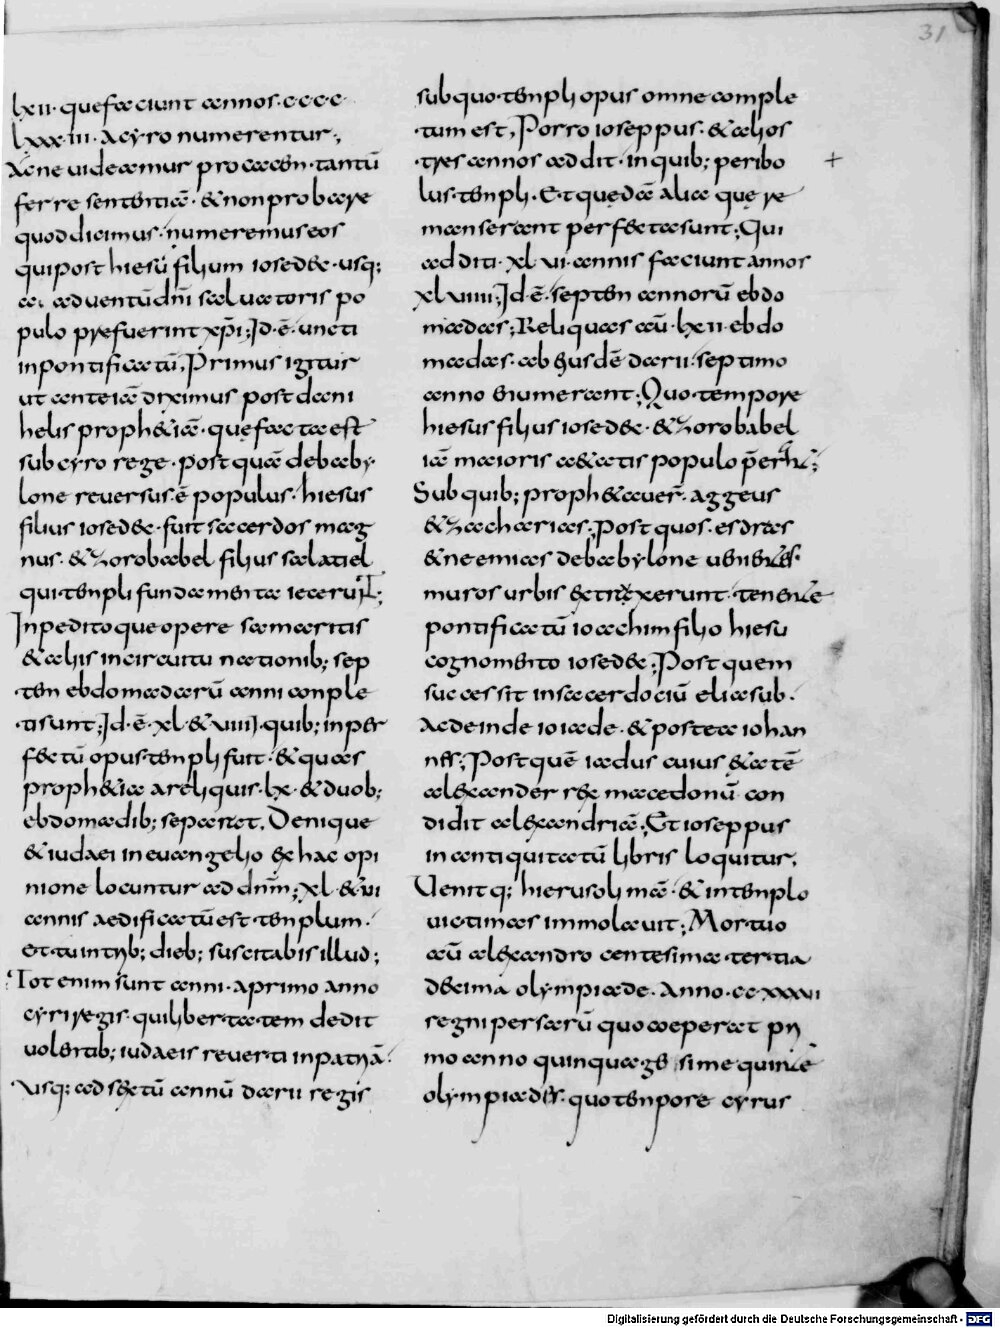 31
lxii · que faciunt annos · cccc
lxxx · iii · a cyro numerentur ;
Ac ne uideamur procacem · tantū
ferre sententiā · & non probare
quod dicimus · numeremus eos
qui post hiesū filium iosedec · usq;
ad aduentū dn̄i saluatoris po
pulo prefuerint xp̄i ; Id · ē · uncti
in pontificatū, Primus igitur
ut ante iā diximus post dani
helis proph&iā · que facta est
sub cyro rege · post quā de baby
lone reuersus · ē populus · hiesus
filius iosedec · fuit sacerdos mag
nus · & zorobabel filius salatiel
qui templi fundamenta iecerunt ;
Inpeditoque opere samaritis
& aliis in circuitu nationib; sep
tem ebdomadarū anni conple
ti sunt ; Id · ē · xl · & uiiii · quib; inper
fectū opus templi fuit · & quas
proph&ia a reliquis · lx · & duob;
ebdomadib; separat, Denique
& iudaei in euangelio ex hac opi
nione locuntur ad dnm̄ ; xl · & ui
annis aedificatū est templum ·
et tu in trib; dieb; suscitabis illud ;
Tot enim sunt anni · a primo anno
cyri regis · qui libertatem dedit
uolentib; iudaeis reuerti in patriā ·
Usq; ad sextū annū darii regis
sub quo templi opus omne comple
tum est, Porro ioseppus · & alios
tres annos addit · in quib; peribo
lus templi · Et quedā alia que re
manserant perfecta sunt ; Qui
additi · xl · ui · annis faciunt annos
xl uiiii ; Id · ē · septem annorū ebdo
madas ; Reliquas aū · lxii · ebdo
madas · ab eiusdē darii · septimo
anno enumerant ; Quo tempore
hiesus filius iosedec · & zorobabel
iā maioris aetatis populo p̄erant ;
Sub quib; proph&auer̄ · aggeus
& zacharias ; Post quos · esdras
& neemias de babylone uenientes
muros urbis extruxerunt · tenente
pontificatū ioachim filio hiesu
cognomento iosedec ; Post quem
successit in sacerdociū eliasub ·
Ac deinde ioiade · & postea iohan
nes ; Post quē iadus cuius &atē
alexander rex macedonū con
didit alexandriā ; Et ioseppus
in antiquitatū libris loquitur,
Uenitq; hierusolimā · & in templo
uictimas immolauit ; Mortuo
aū alexandro centesima tertia
decima olympiade · Anno · ccxxxui
regni persarū quod coeperat pri
mo anno quinquagesime quinte
olympiades · quo tempore cyrus
Digitalisierung gefördert durch die Deutsche Forschungsgemeinschaft - DFG